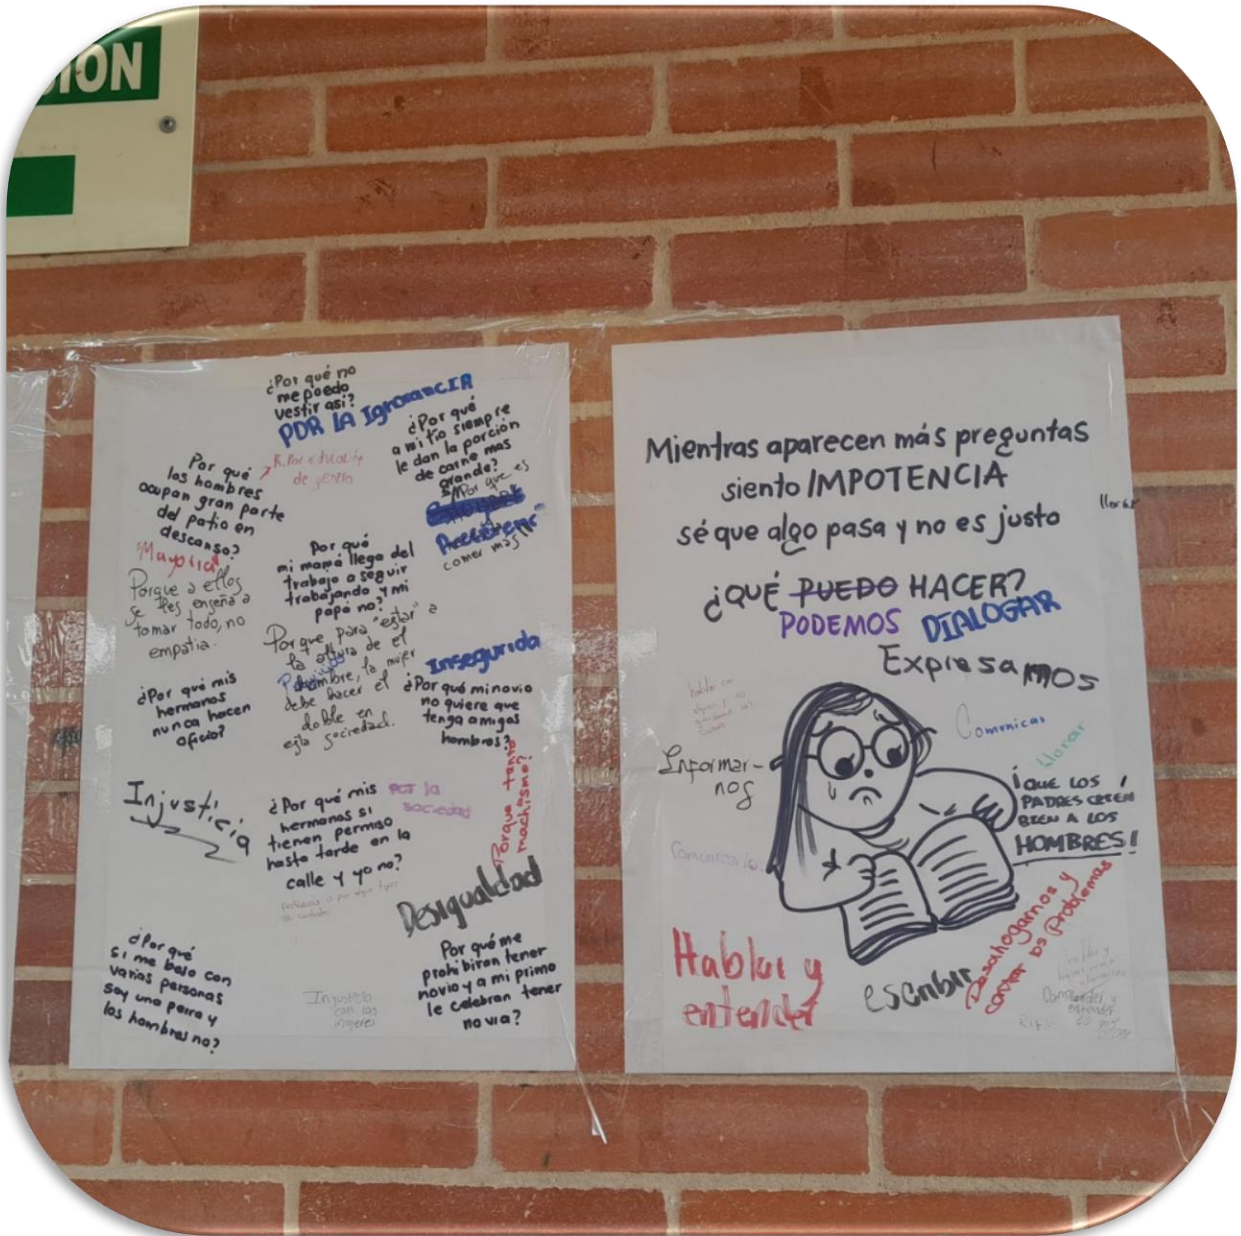 IÓN
¿Por qué no
me puedo
vestir así?
POR LA IgnorancIA
R. Por educación
de genero
¿Por qué
a mi tío siempre
le dan la porción
de carne mas
grande?
Por que es
comer mas
Por qué
los hombres
ocupan gran parte
del patio en
descanso?
"Mayoria"
Porque a ellos
se les enseña a
tomar todo, no
empatia.
Por qué
mi mamá llega del
trabajo a seguir
trabajando y mi
papá no?
Porque, para "estar" a
la altura de el
hombre, la mujer
debe hacer el
doble en
esta sociedad.
Insegurida
¿Por qué mi novio
no quiere que
tenga amigos
hombres?
Porque tanto
machismo?
¿Por qué mis
hermanos
nunca hacen
oficio?
Injusticia
¿Por qué mis
hermanos si
tienen permiso
hasta tarde en la
calle y yo no?
POR la
sociedad
Desigualdad
¿Por qué
si me beso con
varias personas
soy una perra y
los hombres no?
Injusticia
con las
mujeres
Por qué me
prohibiran tener
novio y a mi primo
le celebran tener
novia?
Mientras aparecen más preguntas
siento IMPOTENCIA
sé que algo pasa y no es justo
llorar
¿QUÉ PUEDO HACER?
PODEMOS DIALOGAR
Expresamos
Comunicar
llorar
Informar-
nos
¡QUE LOS
PADRES CRIEN
BIEN A LOS
HOMBRES!
Comunicarlo
Hablar y
entender
escribir
Desahogarnos y
contar los problemas
Comprender y
entender